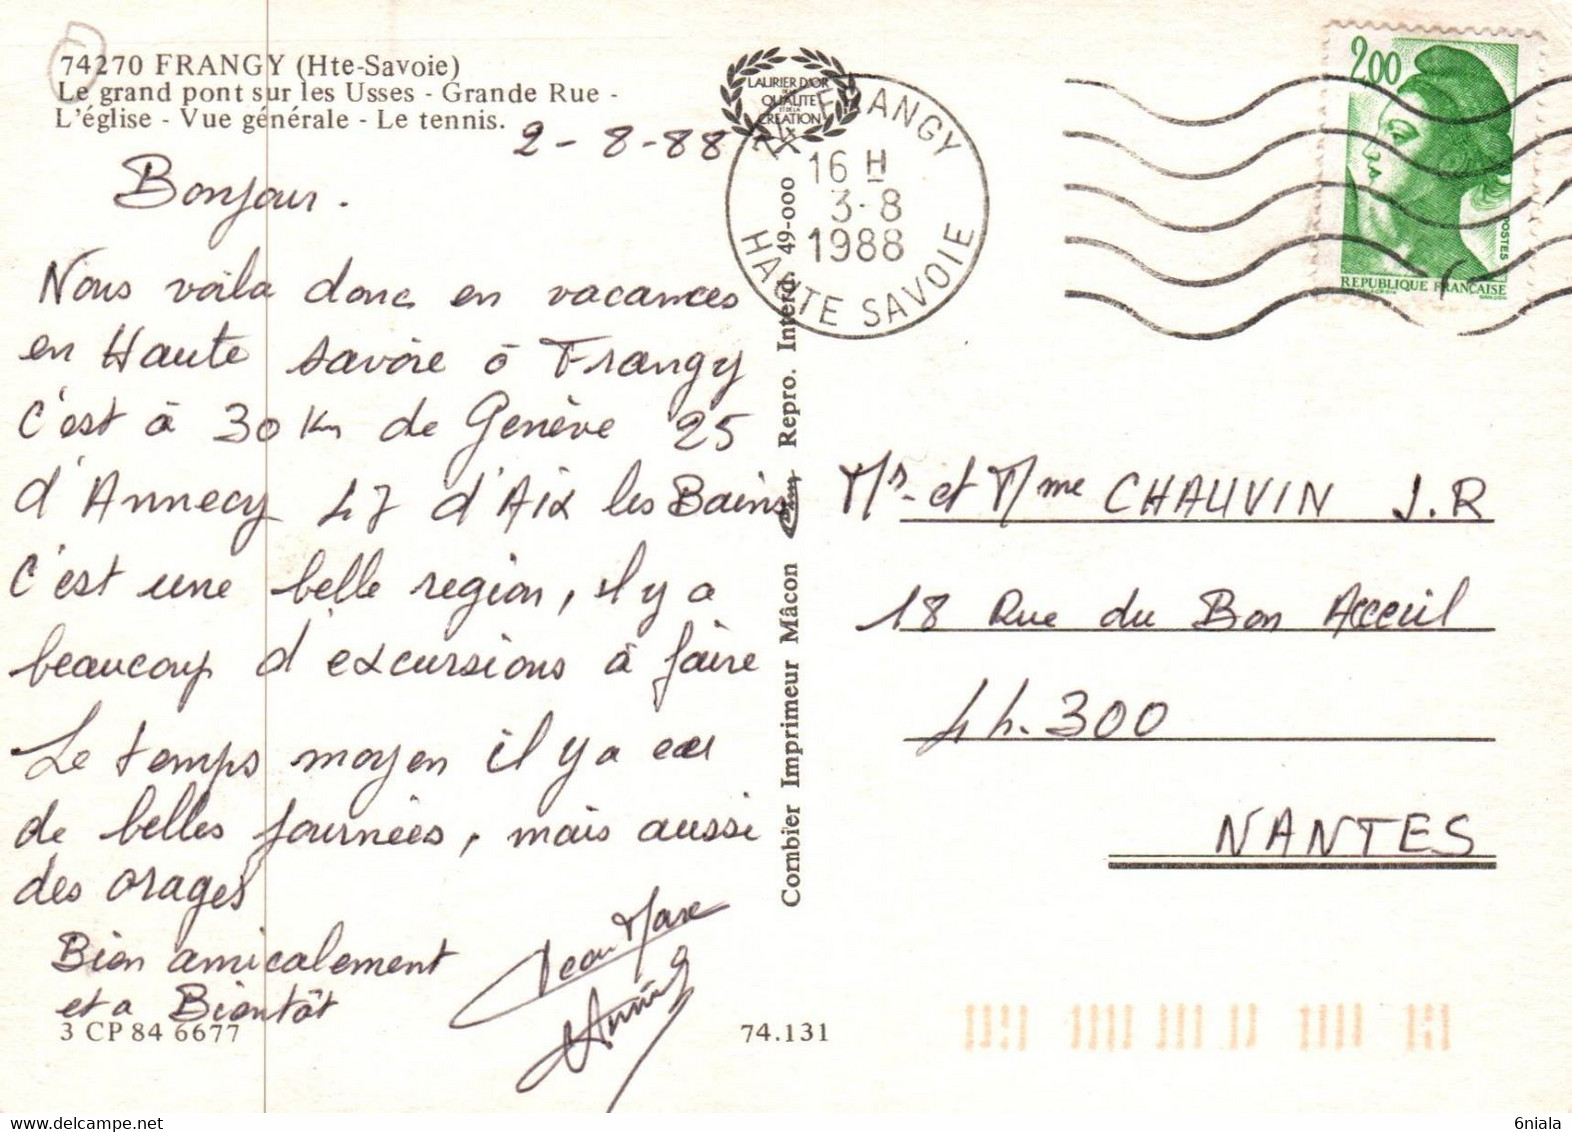 74270 FRANGY (Hte-Savoie)
Le grand pont sur les Usses - Grande Rue -
L'église - Vue générale - Le tennis.
2-8-88
Bonjour.
Nous voila donc en vacances
en Haute savoie à Frangy
C'est à 30 Km de Genève 25
d'Annecy 47 d'Aix les Bains
C'est une belle region, il y a
beaucoup d'excursions à faire
Le temps moyen il y a eu
de belles journées, mais aussi
des orages
Bien amicalement
et a Bientôt
Jean Marc
Annie
3 CP 84 6677
74.131
LAURIER D'OR
DE LA
QUALITE
ET DE LA
CREATION
74 FRANGY
16 H
3-8
1988
HAUTE SAVOIE
2,00
POSTES
REPUBLIQUE FRANÇAISE
GANDON
Combier Imprimeur Mâcon Repro. Interd. 49-000
Mr et Mme CHAUVIN J.R
18 Rue du Bon Acceuil
44.300
NANTES
6niala